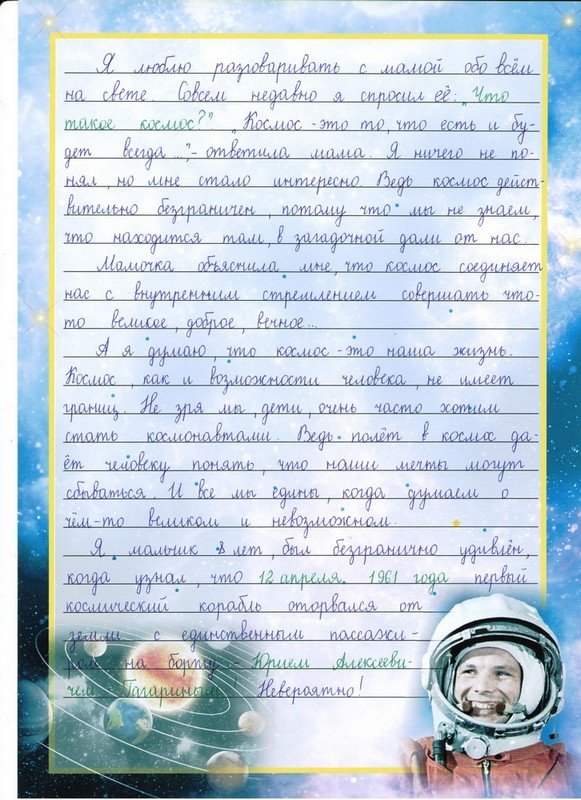 Я люблю разговаривать с мамой обо всём
на свете. Совсем недавно я спросил её: "Что
такое космос?" "Космос - это то, что есть и бу-
дет всегда...", - ответила мама. Я ничего не по-
нял, но мне стало интересно. Ведь космос дейст-
вительно безграничен, потому что мы не знаем,
что находится там, в загадочной дали от нас.
Мамочка объяснила мне, что космос соединяет
нас с внутренним стремлением совершать что-
то великое, доброе, вечное...
А я думаю, что космос - это наша жизнь.
Космос, как и возможности человека, не имеет
границ. Не зря мы, дети, очень часто хотим
стать космонавтами. Ведь полёт в космос да-
ёт человеку понять, что наши мечты могут
сбываться. И все мы едины, когда думаем о
чём-то великом и невозможном.
Я, мальчик 8 лет, был безгранично удивлён,
когда узнал, что 12 апреля 1961 года первый
космический корабль оторвался от
земли с единственным пассажи-
ром на борту - Юрием Алексееви-
чем Гагариным. Невероятно!